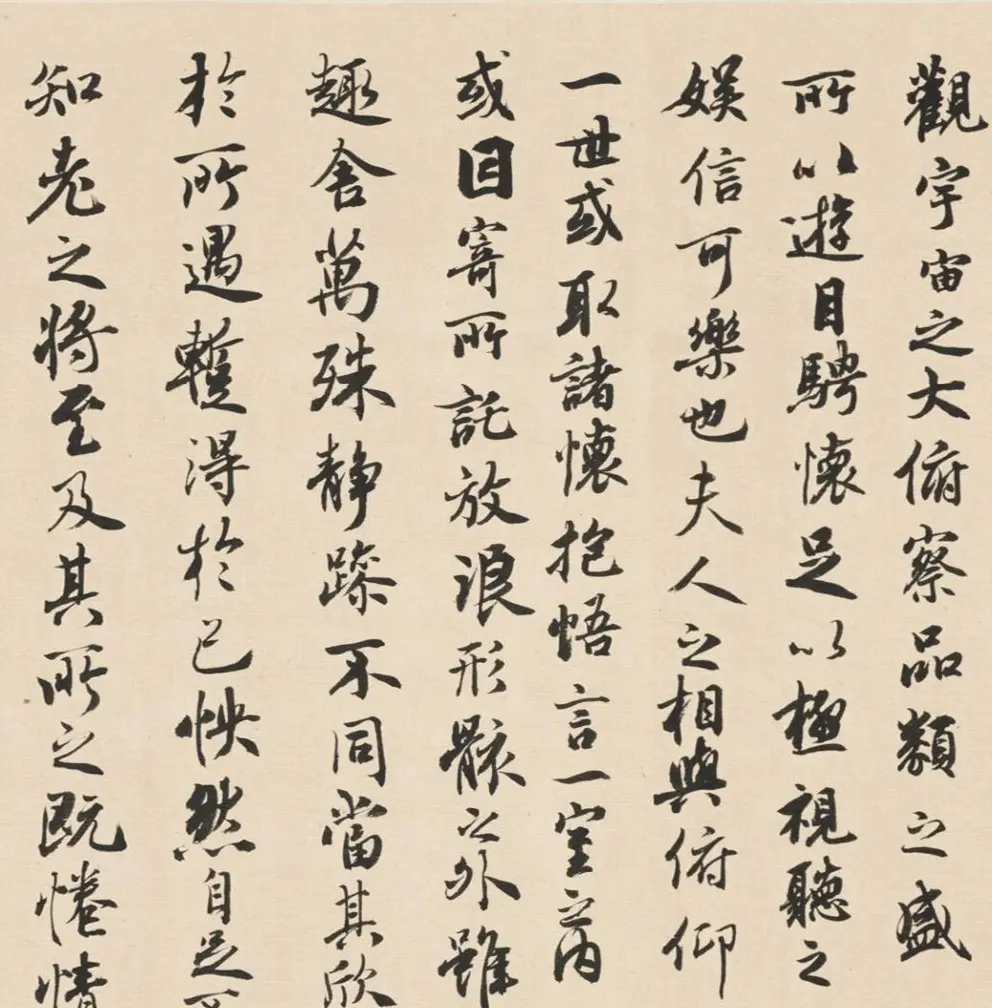 觀宇宙之大俯察品類之盛
所以遊目騁懷足以極視聽之
娛信可樂也夫人之相與俯仰
一世或取諸懷抱悟言一室之內
或因寄所託放浪形骸之外雖
趣舍萬殊静躁不同當其欣
於所遇蹔得於己怏然自足不
知老之將至及其所之既惓情